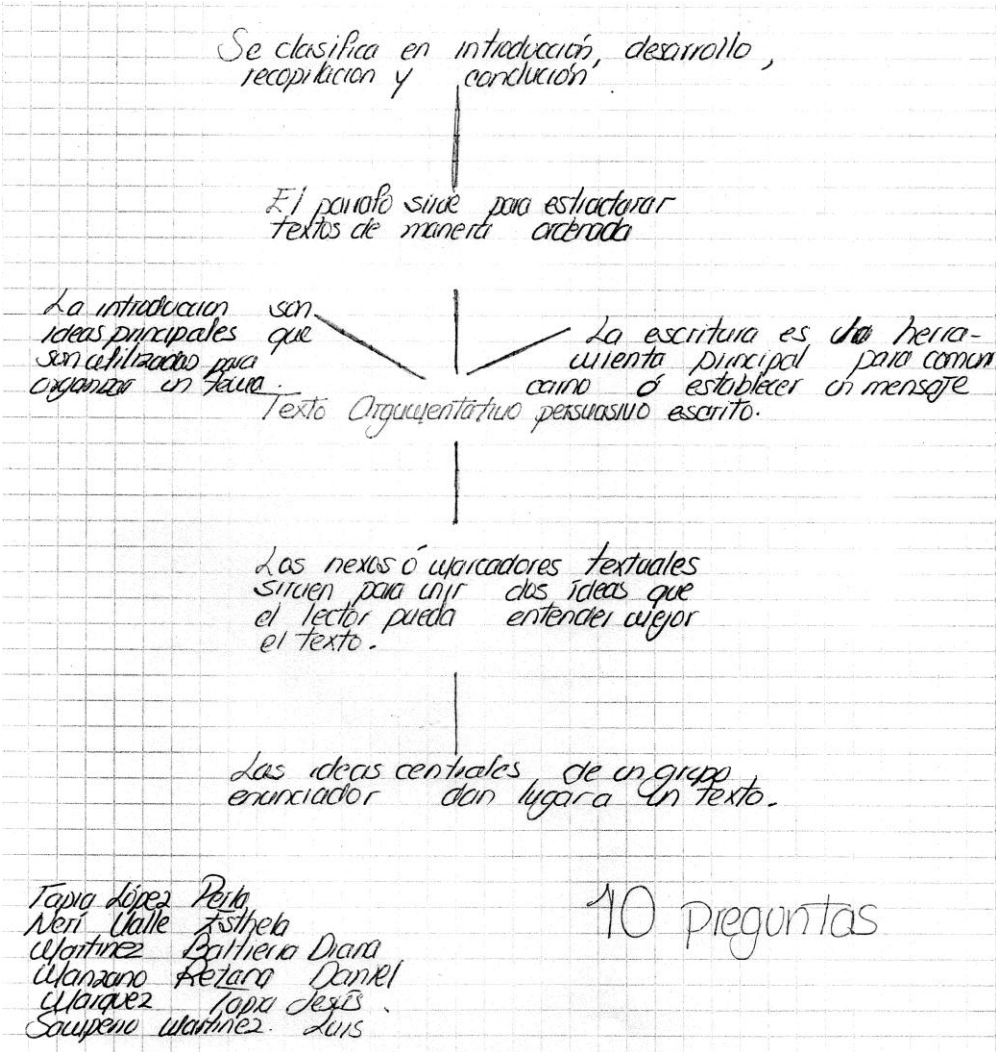 Se clasifica en introducción, desarrollo,
recopilacion y conclución
El parrafo sirve para estructurar
textos de manera ordenada
La introduccion son
ideas principales que
son utilizadas para
organizar un tema.
La escritura es una herra-
mienta principal para comuni
carno ó establecer un mensaje
Texto Argumentativo persuasivo escrito.
Los nexos ó marcadores textuales
sirven para unir dos ideas que
el lector pueda entender mejor
el texto.
Las ideas centrales de un grupo
enunciador dan lugar a un texto.
Tapia López Perla
Neri Valle Esthela
Martinez Diana
Manzano Daniel
Marquez Tapia Jesús.
Sampeno Martinez. Luis
10 preguntas